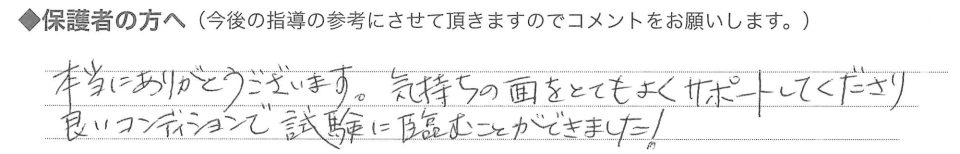 ◆保護者の方へ（今後の指導の参考にさせて頂きますのでコメントをお願いします。）
本当にありがとうございます。気持ちの面をとてもよくサポートしてくださり
良いコンディションで試験に臨むことができました!